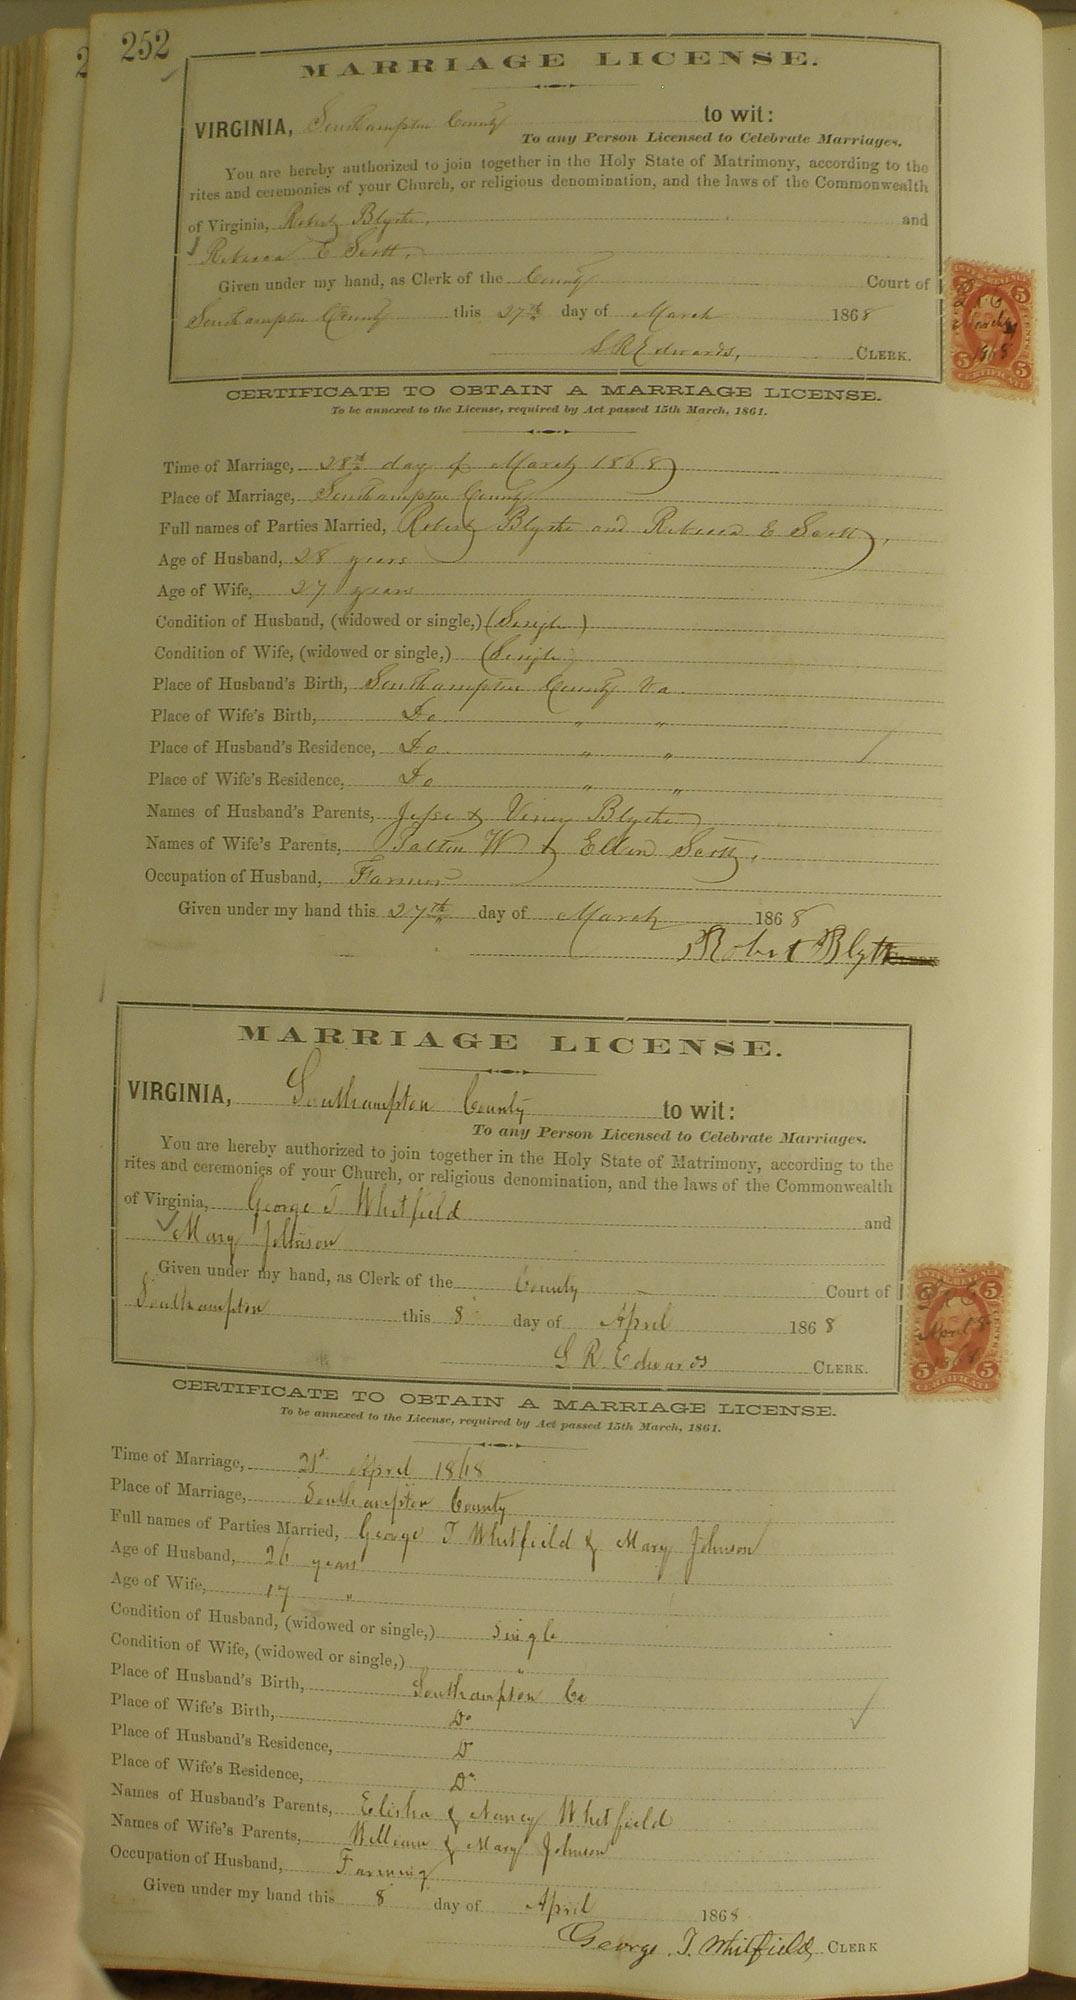 252
MARRIAGE LICENSE.
VIRGINIA, Southampton County to wit:
To any Person Licensed to Celebrate Marriages.
You are hereby authorized to join together in the Holy State of Matrimony, according to the
rites and ceremonies of your Church, or religious denomination, and the laws of the Commonwealth
of Virginia, Robert Blythe, and
Rebecca E Scott,
Given under my hand, as Clerk of the County Court of
Southampton County this 27th day of March 1868
L R Edwards, CLERK.
CERTIFICATE TO OBTAIN A MARRIAGE LICENSE.
To be annexed to the License, required by Act passed 15th March, 1861.
Time of Marriage, 28th day of March 1868
Place of Marriage, Southampton County
Full names of Parties Married, Robert Blythe and Rebecca E Scott,
Age of Husband, 28 years
Age of Wife, 27 years
Condition of Husband, (widowed or single,) (Single)
Condition of Wife, (widowed or single,) (Single)
Place of Husband's Birth, Southampton County Va.
Place of Wife's Birth, Do " "
Place of Husband's Residence, Do " "
Place of Wife's Residence, Do " "
Names of Husband's Parents, Jesse & Blythe
Names of Wife's Parents, W & Ellen Scott,
Occupation of Husband, Farmer
Given under my hand this 27th day of March 1868
Robert Blythe
MARRIAGE LICENSE.
VIRGINIA, Southampton County to wit:
To any Person Licensed to Celebrate Marriages.
You are hereby authorized to join together in the Holy State of Matrimony, according to the
rites and ceremonies of your Church, or religious denomination, and the laws of the Commonwealth
of Virginia, George T Whitfield and
Mary Johnson
Given under my hand, as Clerk of the County Court of
Southampton this 8 day of April 1868
L R Edwards CLERK.
CERTIFICATE TO OBTAIN A MARRIAGE LICENSE.
To be annexed to the License, required by Act passed 15th March, 1861.
Time of Marriage, 21st April 1868
Place of Marriage, Southampton County
Full names of Parties Married, George T Whitfield & Mary Johnson
Age of Husband, 26 years
Age of Wife, 17 "
Condition of Husband, (widowed or single,) Single
Condition of Wife, (widowed or single,) "
Place of Husband's Birth, Southampton Co
Place of Wife's Birth, Do
Place of Husband's Residence, D
Place of Wife's Residence, Do
Names of Husband's Parents, Elisha & Nancy Whitfield
Names of Wife's Parents, William & Mary Johnson
Occupation of Husband, Farming
Given under my hand this 8 day of April 1868
George T. Whitfield CLERK